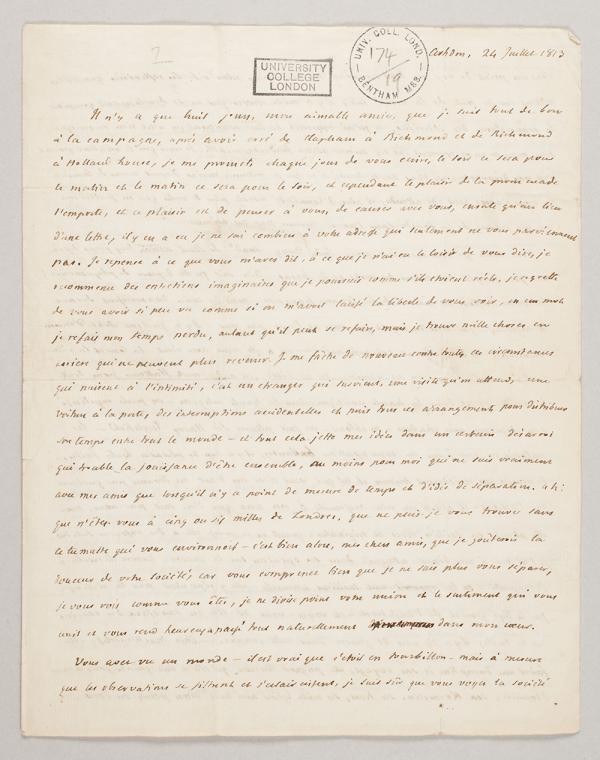 2
UNIV. COLL. LOND.
174
19
BENTHAM MSS.
UNIVERSITY
COLLEGE
LONDON
24 Juillet 1813
Il n'y a que huit jours, mon aimable amie, que je suis tout de bon
à la campagne, après avoir erré de Clapham à Richmond et de Richmond
à Holland house, je me promets chaque jour de vous écrire, le soir ce sera pour
le matin et le matin ce sera pour le soir, et cependant le plaisir de la promenade
l'emporte, et ce plaisir est de penser à vous, de causer avec vous, ensorte qu'au lieu
d'une lettre, il y en a eu je ne sai combien à votre adresse qui seulement ne vous parviennent
pas. Je repense à ce que vous m'avez dit, à ce que je n'ai eu le loisir de vous dire, je
recommence des entretiens imaginaires que je poursuis comme s'ils étoient réels, je regrette
de vous avoir si peu vu comme si on m'avoit laissé la liberté de vous voir, en un mot
je refais mon temps perdu, autant qu'il peut se refaire, mais je trouve mille choses en
arriere qui ne peuvent plus revenir. Je me fâche de nouveau contre toutes ces circonstances
qui nuisent à l'intimité, c'est un étranger qui survient, une visite qu'on attend, une
voiture à la porte, des interruptions accidentelles et puis tous ces arrangements pour distribuer
son temps entre tout le monde – et tout cela jette mes idées dans un certain désarroi
qui trouble la jouissance d'être ensemble, au moins pour moi qui ne suis vraiment
avec mes amis que lorsqu'il n'y a point de mesure de temps et d'idée de séparation. ah!
que n'êtes-vous à cinq ou six milles de Londres, que ne puis-je vous trouver sans
ce tumulte qui vous environnoit – c'est bien alors, mes chers amis, que je goûterois la
douceur de votre société, car vous comprenez bien que je ne sais plus vous séparer,
je vous vois comme vous êtes, je ne divise point votre union et le sentiment qui vous
unit et vous rend heureux a passé tout naturellement dans mon cœur.
Vous avez vu un monde – il est vrai que c'étoit en tourbillon – mais à mesure
que les observations se filtrent et s'éclaircissent, je suis sûr que vous voyez la société